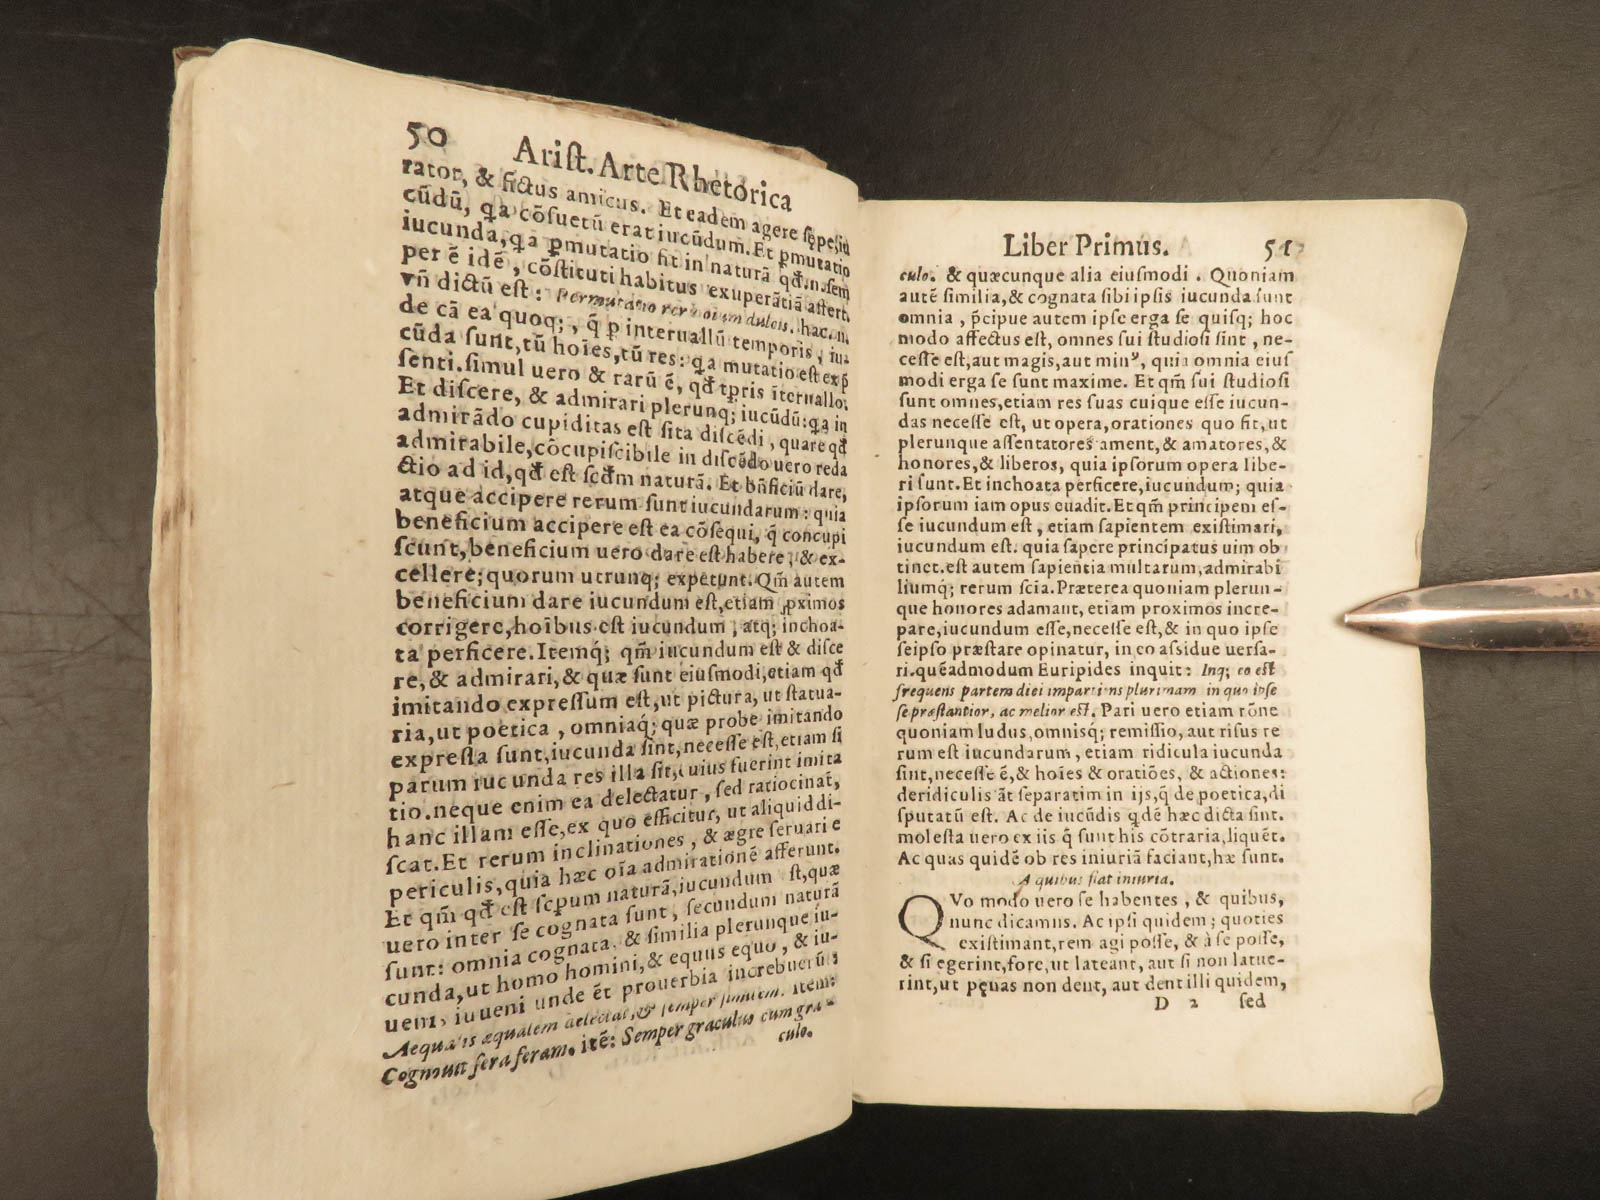 50 Ariſt. Arte Rhetorica
rator, & fictus amicus. Et eadem agere ſępe, iu
cūdū, qa cōſuetū erat iucūdum. Et ꝑmutatio
iucunda, qa ꝑmutatio fit in naturā qđ.n. ſem
per ē idē, cōſtituti habitus exuperātiā affert.
vñ dictū eſt: Permutatio rerum dulcis. hac.n.
de cā ea quoq;, q̄ ꝑ interuallū temporis, iu-
cūda ſunt, tū hoīes, tū res: qa mutatio eſt exp̄
ſenti. ſimul uero & rarū ē, qđ tꝑris īteruallo.
Et diſcere, & admirari plerunq; iucūdū: qa in
admirādo cupiditas eſt ſita diſcēdi, quare qđ
admirabile, cōcupiſcibile in diſcēdo uero reda
ctio ad id, qđ eſt ſcđm naturā. Et bn̄ficiū dare,
atque accipere rerum ſunt iucundarum: quia
beneficium accipere eſt ea cōſequi, q̄ concupi
ſcunt, beneficium uero dare eſt habere, & ex-
cellere; quorum utrunq; expetunt. Qm̄ autem
beneficium dare iucundum eſt, etiam ꝓximos
corrigere, hoībus eſt iucundum, atq; inchoa-
ta perficere. Itemq́; qm̄ iucundum eſt & diſce
re, & admirari, & quæ ſunt eiuſmodi, etiam qđ
imitando expreſſum eſt, ut pictura, ut ſtatua-
ria, ut poetica, omniaq́; quæ probe imitando
expreſſa ſunt, iucunda ſint, neceſſe eſt, etiam ſi
parum iucunda res illa ſit, cuius fuerint imita
tio. neque enim ea delectatur, ſed ratiocinat,
hanc illam eſſe, ex quo efficitur, ut aliquid di-
ſcat. Et rerum inclinationes, & ægre ſeruari e
periculis, quia hæc oīa admirationē afferunt.
Et qm̄ qđ eſt ſcꝑum naturā, iucundum ſt, quæ
uero inter ſe cognata ſunt, ſecundum naturā
ſunt: omnia cognata, & ſimilia plerunque iu-
cunda, ut homo homini, & equus equo, & iu-
ueni, iuueni unde ēt prouerbia increbuerūt:
Aequalis æqualem delectat, & ſemper ſimilem. Item:
Cognouit fera feram. itē: Semper graculus cum gra-
culo.
Liber Primus. 51
culo. & quæcunque alia eiuſmodi. Quoniam
autē ſimilia, & cognata ſibi ipſis iucunda ſunt
omnia, p̄cipue autem ipſe erga ſe quiſq; hoc
modo affectus eſt, omnes ſui ſtudioſi ſint, ne-
ceſſe eſt, aut magis, aut minꝰ, quia omnia eiuſ
modi erga ſe ſunt maxime. Et qm̄ ſui ſtudioſi
ſunt omnes, etiam res ſuas cuique eſſe iucun-
das neceſſe eſt, ut opera, orationes quo fit, ut
plerunque aſſentatores ament, & amatores, &
honores, & liberos, quia ipſorum opera libe-
ri ſunt. Et inchoata perficere, iucundum; quia
ipſorum iam opus euadit. Et qm̄ principem eſ-
ſe iucundum eſt, etiam ſapientem exiſtimari,
iucundum eſt. quia ſapere principatus uim ob
tinet. eſt autem ſapientia multarum, admirabi
liumq; rerum ſcīa. Præterea quoniam plerun-
que honores adamant, etiam proximos incre-
pare, iucundum eſſe, neceſſe eſt, & in quo ipſe
ſeipſo præſtare opinatur, in eo aſſidue uerſa-
ri. quēadmodum Euripides inquit: Inq; eo eſt
frequens partem diei impartiens plurimam in quo ipſe
ſe præſtantior, ac melior eſt. Pari uero etiam rōne
quoniam ludus, omnisq́; remiſſio, aut riſus re
rum eſt iucundarum, etiam ridicula iucunda
ſint, neceſſe ē, & hoīes & oratiōes, & actiones:
de ridiculis āt ſeparatim in ijs, q̄ de poetica, di
ſputatū eſt. Ac de iucūdis qdē hæc dicta ſint.
moleſta uero ex iis q̄ ſunt his cōtraria, liquēt.
Ac quas quidē ob res iniuriā faciant, hæ ſunt.
A quibus fiat iniuria.
QVo modo uero ſe habentes, & quibus,
nunc dicamus. Ac ipſi quidem; quoties
exiſtimant, rem agi poſſe, & à ſe poſſe,
& ſi egerint, fore, ut lateant, aut ſi non latue-
rint, ut pęnas non dent, aut dent illi quidem,
D 2 ſed